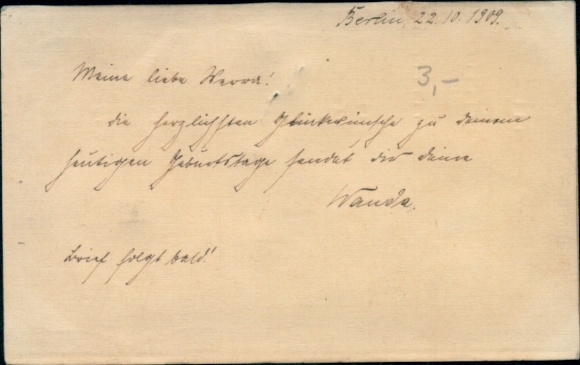 Berlin, 22.10.1909.
Meine liebe Herra!
3,-
die herzlichsten Glückwünsche zu deinem
heutigen Geburtstage sendet dir deine
Wanda.
Brief folgt bald!